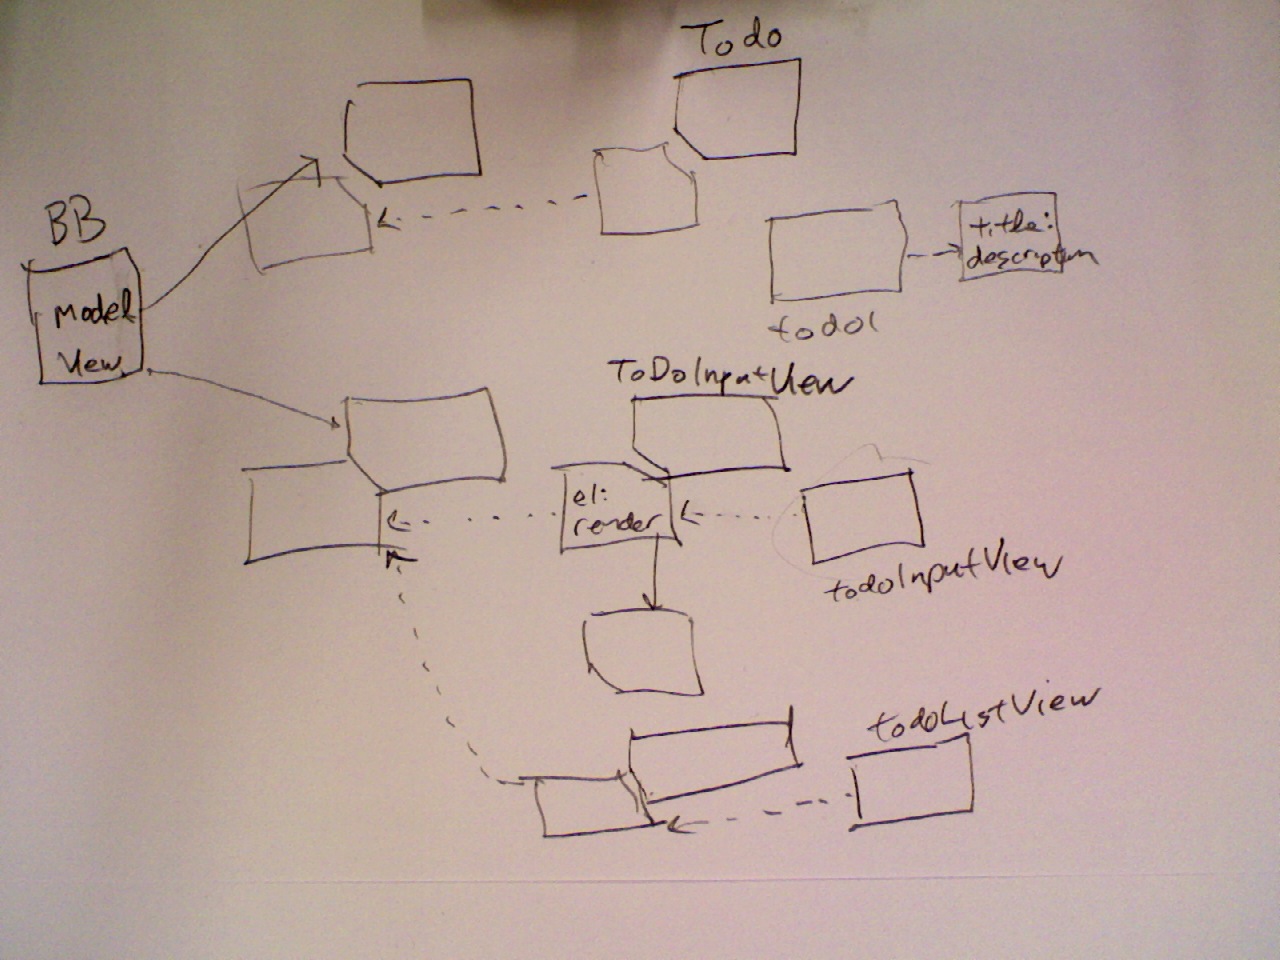 Todo
BB
Model
View
title:
description
todo1
ToDoInputView
el:
render
todoInputView
todoListView